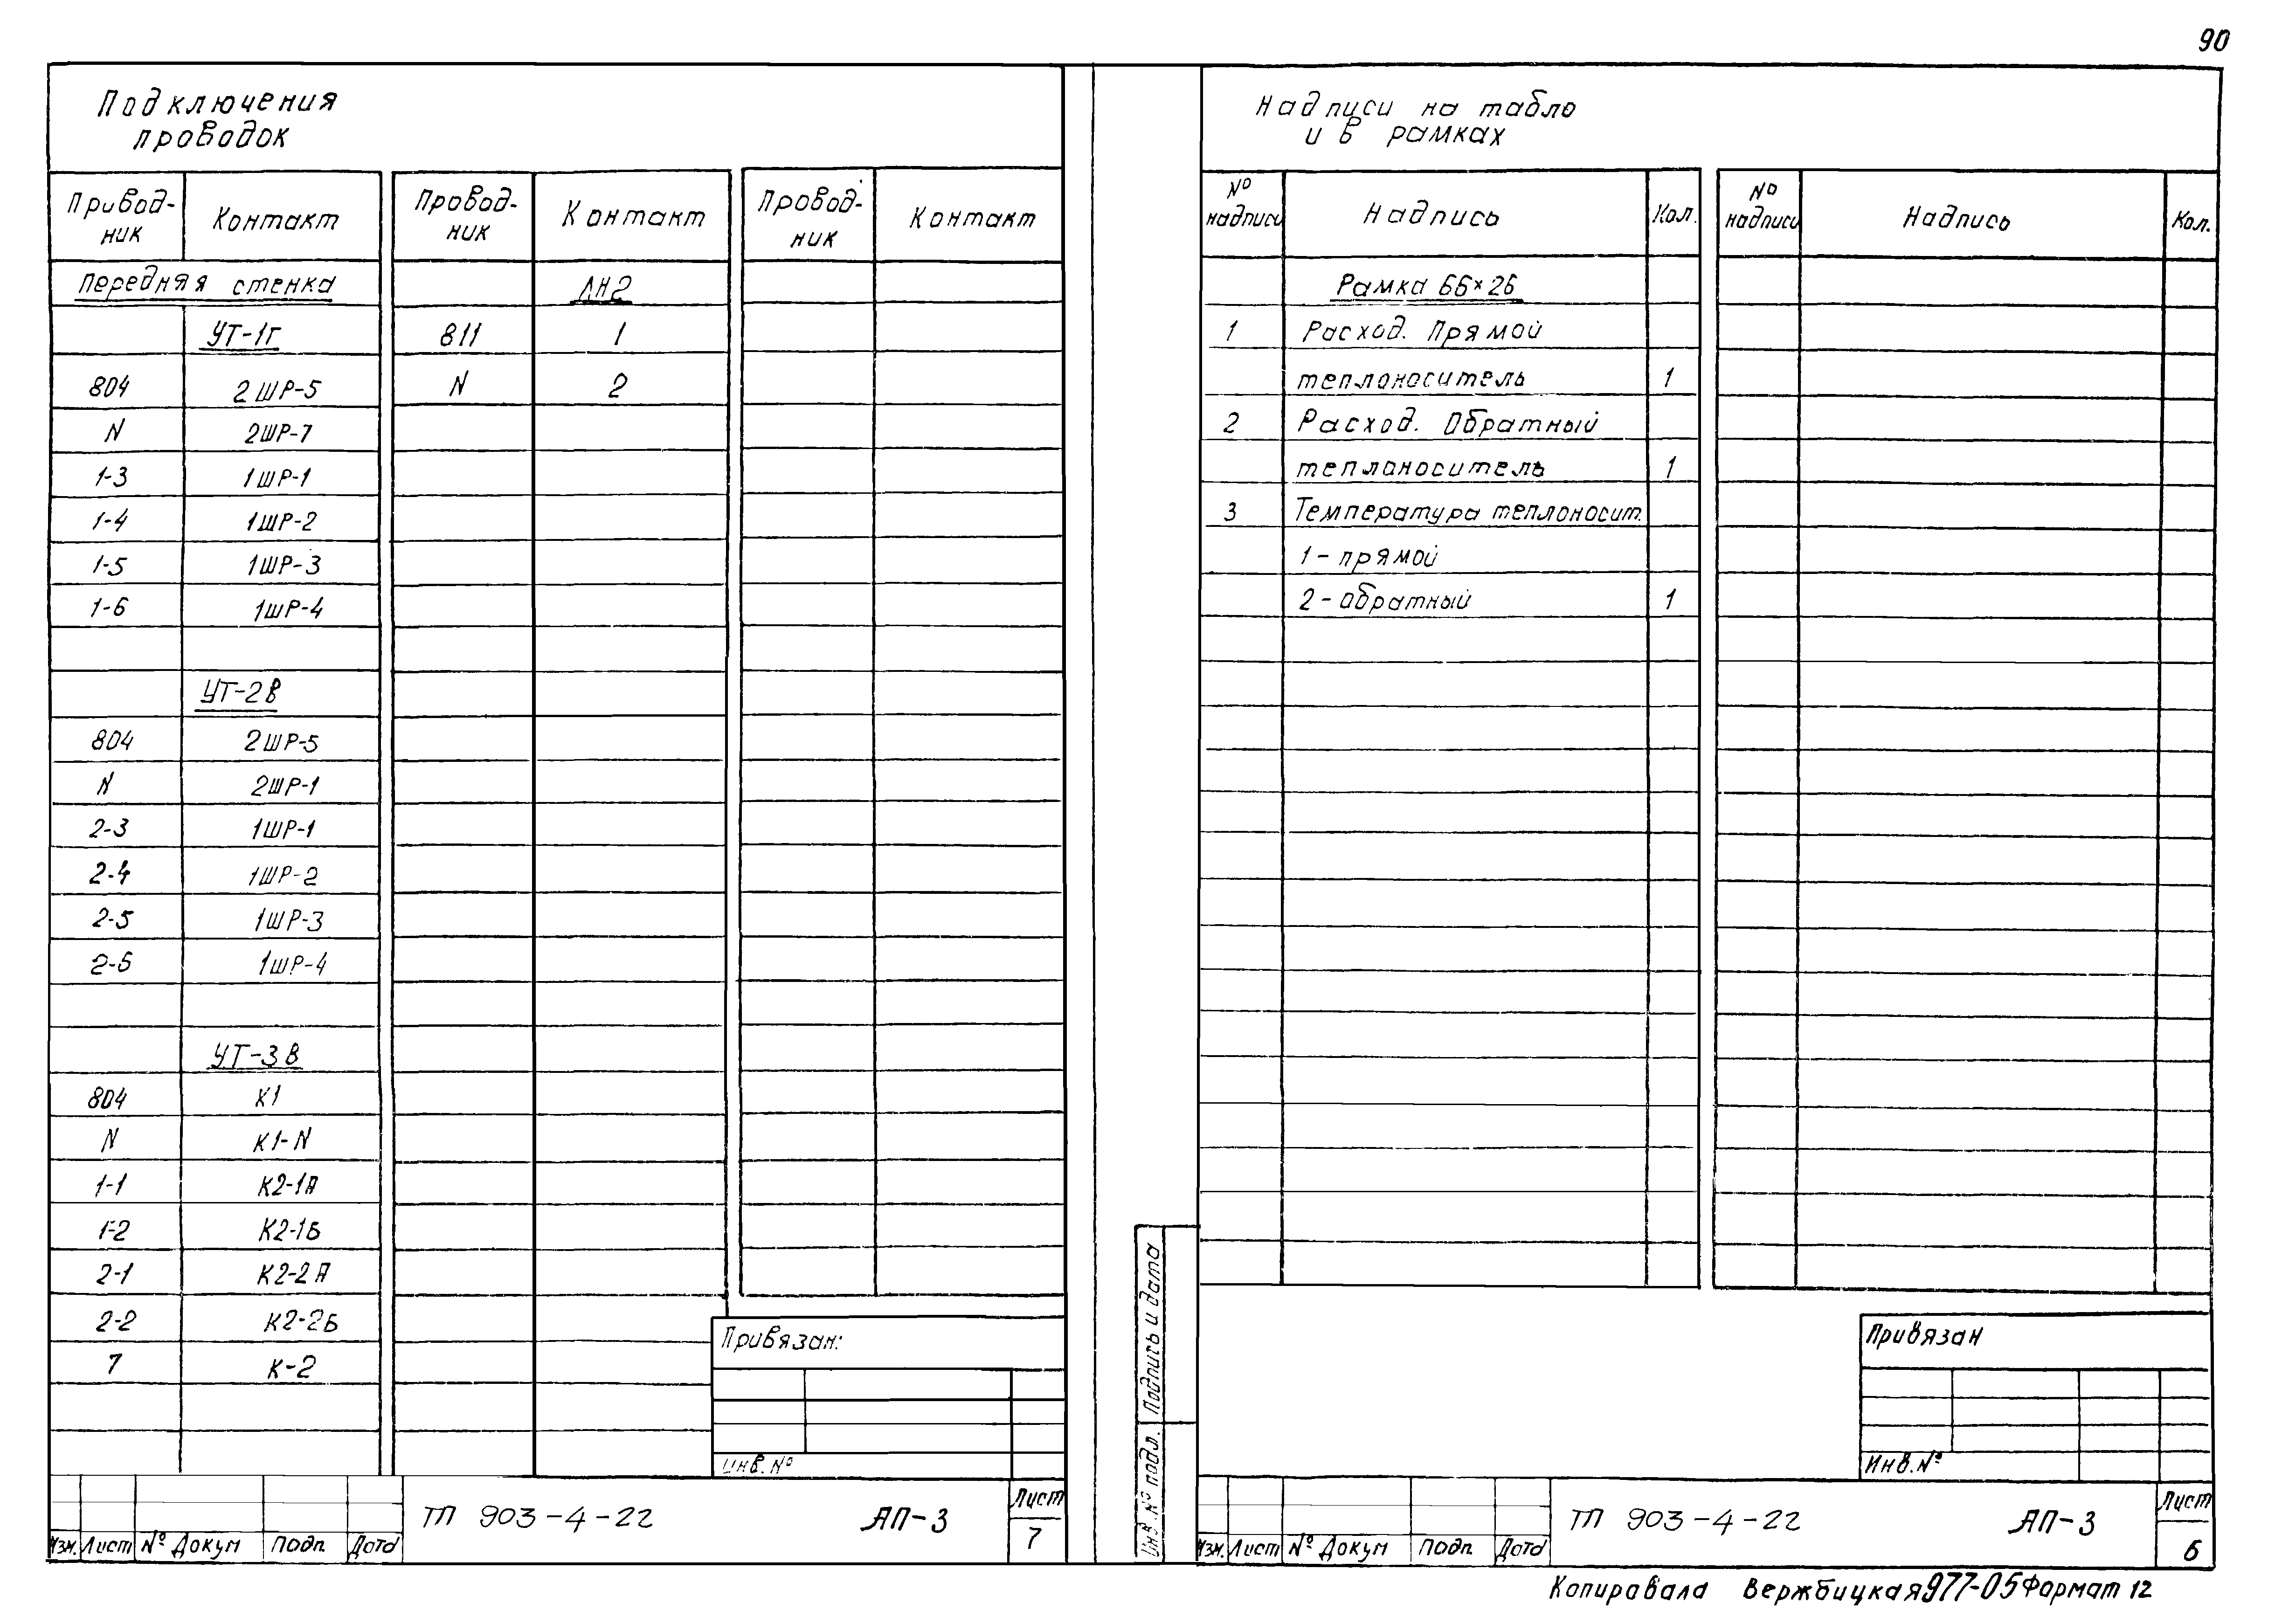 90
Подключения
проводок
Привод-
ник
Контакт
Провод-
ник
Контакт
Провод-
ник
Контакт
Передняя стенка
УТ-1Г
804 2ШР-5
N 2ШР-7
1-3 1ШР-1
1-4 1ШР-2
1-5 1ШР-3
1-6 1ШР-4
УТ-2В
804 2ШР-5
N 2ШР-1
2-3 1ШР-1
2-4 1ШР-2
2-5 1ШР-3
2-6 1ШР-4
УТ-3В
804 К1
N К1-N
1-1 К2-1А
1-2 К2-1Б
2-1 К2-2А
2-2 К2-2Б
7 К-2
ЛН2
811 1
N 2
Привязан:
Инв.№
Изм. Лист № Докум Подп. Дата
ТП 903-4-22 АП-3
Лист
7
Надписи на табло
и в рамках
№
надписи
Надпись
Кол.
№
надписи
Надпись
Кол.
Рамка 66×26
1 Расход. Прямой
теплоноситель 1
2 Расход. Обратный
теплоноситель 1
3 Температура теплоносит.
1 - прямой
2 - обратный 1
Привязан
Инв.№
Подпись и дата
Инв.№ подл.
Изм. Лист № Докум Подп. Дата
ТП 903-4-22 АП-3
Лист
6
Копировала Вержбицкая 977-05 Формат 12